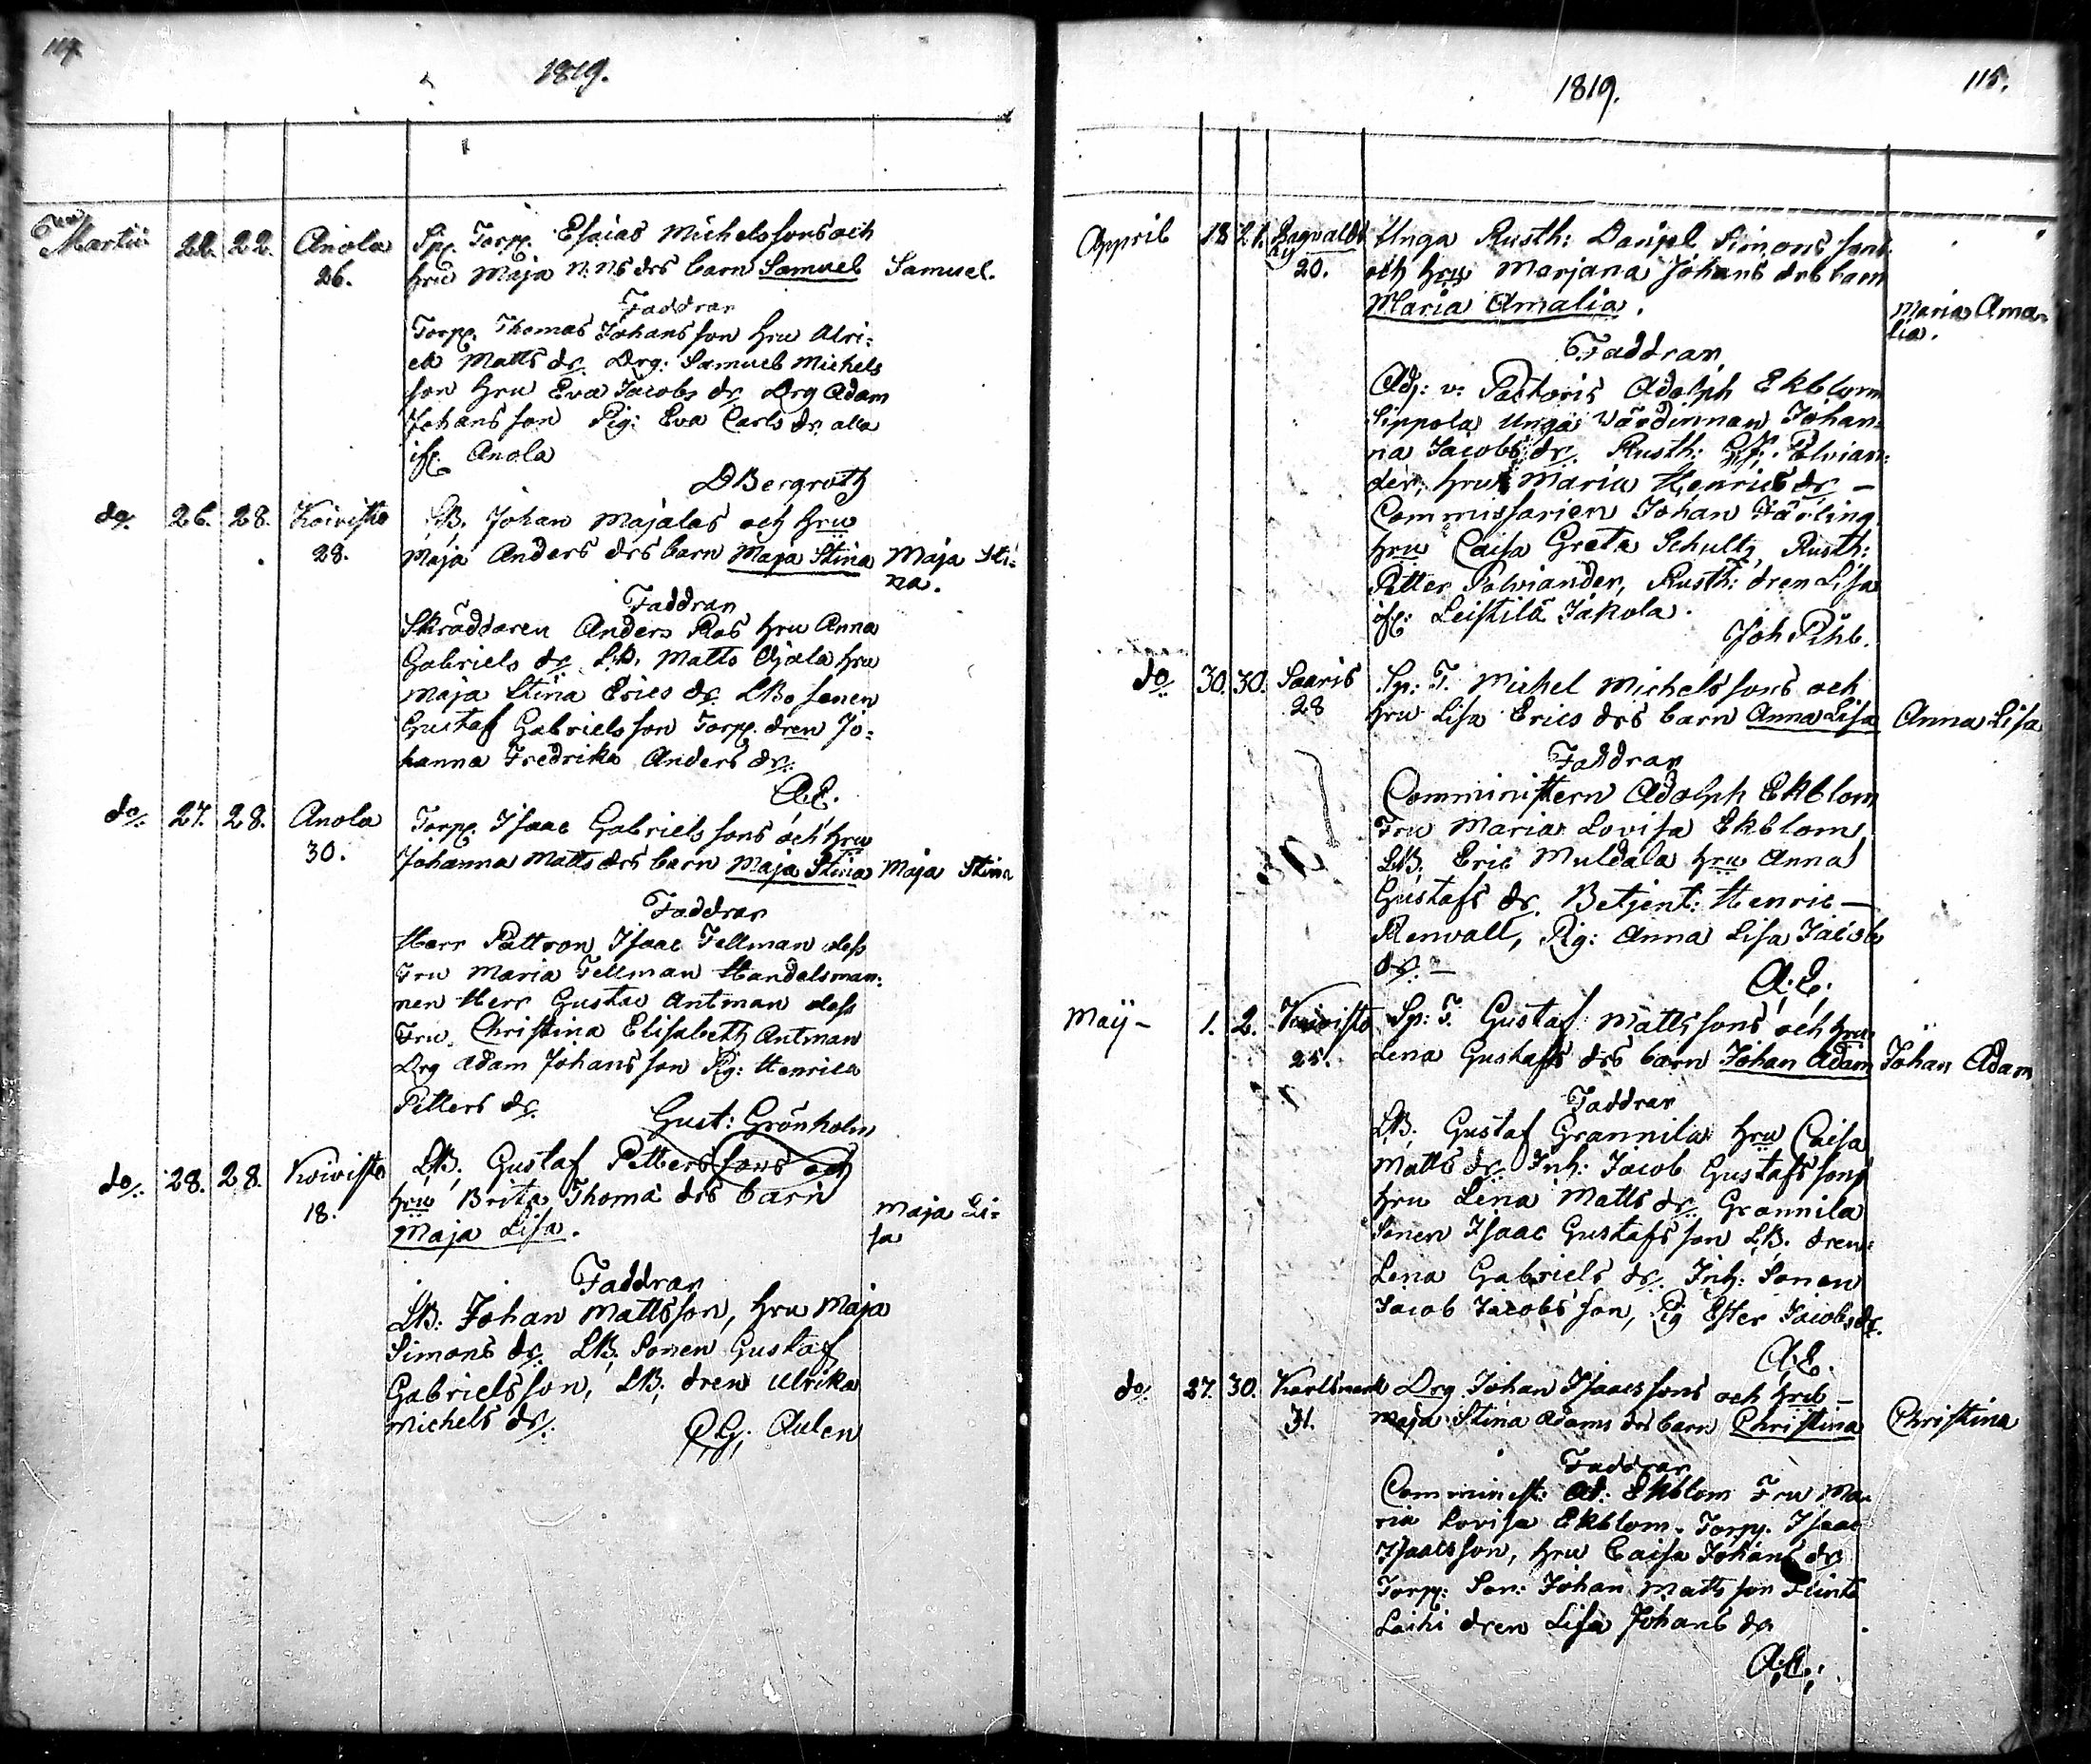 114.
1819.
Martii 22. 22. Anola Sp. Torp. Esaias Michelssons och
26. hru Maja N.Ns drs barn Samuel Samuel.
Faddrar
Torp. Thomas Johansson hru Ulri-
ca Matts dr. Drg: Samuel Michels
son hru Eva Jacobs dr Drg Adam
Johansson Pig: Eva Carls dr. alla
ifr. Anola
DBergroth
do. 26. 28. Koivisto LB. Johan Majalas och hru
28. Maja Anders drs barn Maja Stina Maja Sti-
na.
Faddrar
Skräddaren Anders Ros hru Anna
Gabriels dr. LB. Matts Ojala hru
Maja Stina Erics dr. LBo sonen
Gustaf Gabrielsson Torp. dren Jo-
hanna Fredrika Anders dr.
A.E.
do. 27. 28. Anola Torp. Isaac Gabrielssons och hru
30. Johanna Matts drs barn Maja Stina Maja Stina
Faddrar
Herr Pattron Isaac Fellman dess
Fru Maria Fellman Handelsman-
nen Herr Gustav Antman dess
Fru Christina Elisabeth Antman
Drg Adam Johansson Pig: Henrica
Petters dr.
Gust: Grönholm
do. 28. 28. Koivisto LB. Gustaf Petterssons och
18. hru Brita Thoma drs barn
Maja Lisa. Maja Li-
sa
Faddrar
LB: Johan Mattsson, hru Maja
Simons dr. LB. Sonen Gustaf
Gabrielsson, LB. dren Ulrika
Michels dr.
G. Aulen
1819.
115.
Appril 18 21. Ragvalds Unga Rusth: Daniel Simonssons
by 20. och hru Marjana Johans drs barn
Maria Amalia. Maria Ama-
lia.
Faddrar
Adj: v: Pastoris Adolph Ekblom
Sippola Unga Värdinnan Johan-
na Jacobs dr. Rusth: Polvian-
der, hru Maria Henrics dr —
Commissarien Johan Färling
hru Caisa Greta Schultz, Rusth:
Petter Polviander, Rusth: dren Lisa
ifr: Leistilä Jakola.
Joh Pihl.
do 30. 30. Saaris Sp: T. Michel Michelssons och
28 hru Lisa Erics drs barn Anna Lisa Anna Lisa
Faddrar
Comministern Adolph Ekblom
Fru Maria Lovisa Ekblom,
LB. Eric Muldala hru Anna
Gustafs dr. Betjent: Henric —
Renvall, Pig: Anna Lisa Jacobs
dr. —
A.E.
Maÿ — 1. 2. Koivisto Sp: T. Gustaf Mattssons och hru
25. Lena Gustafs drs barn Johan Adam Johan Adam
Faddrar
LB. Gustaf Grannila hru Caisa
Matts dr. Inh: Jacob Gustafssons
hru Lena Matts dr. Grannila
Sonen Isaac Gustafsson LB. dren
Lena Gabriels dr. Inh: Sonen
Jacob Jacobsson, Pig Ester Jacobs dr.
A.E.
do 27. 30. Karlsmark Drg Johan Isaacssons och hru —
31. Maja Stina Adams drs barn Christina Christina
Faddrar
Comminist: Ad: Ekblom Fru Ma-
ria Lovisa Ekblom. Torp. Isaac
Isaacsson, hru Caisa Johans dr
Torp: Son: Johan Mattsson
Laihi dren Lisa Johans dr
A.E.